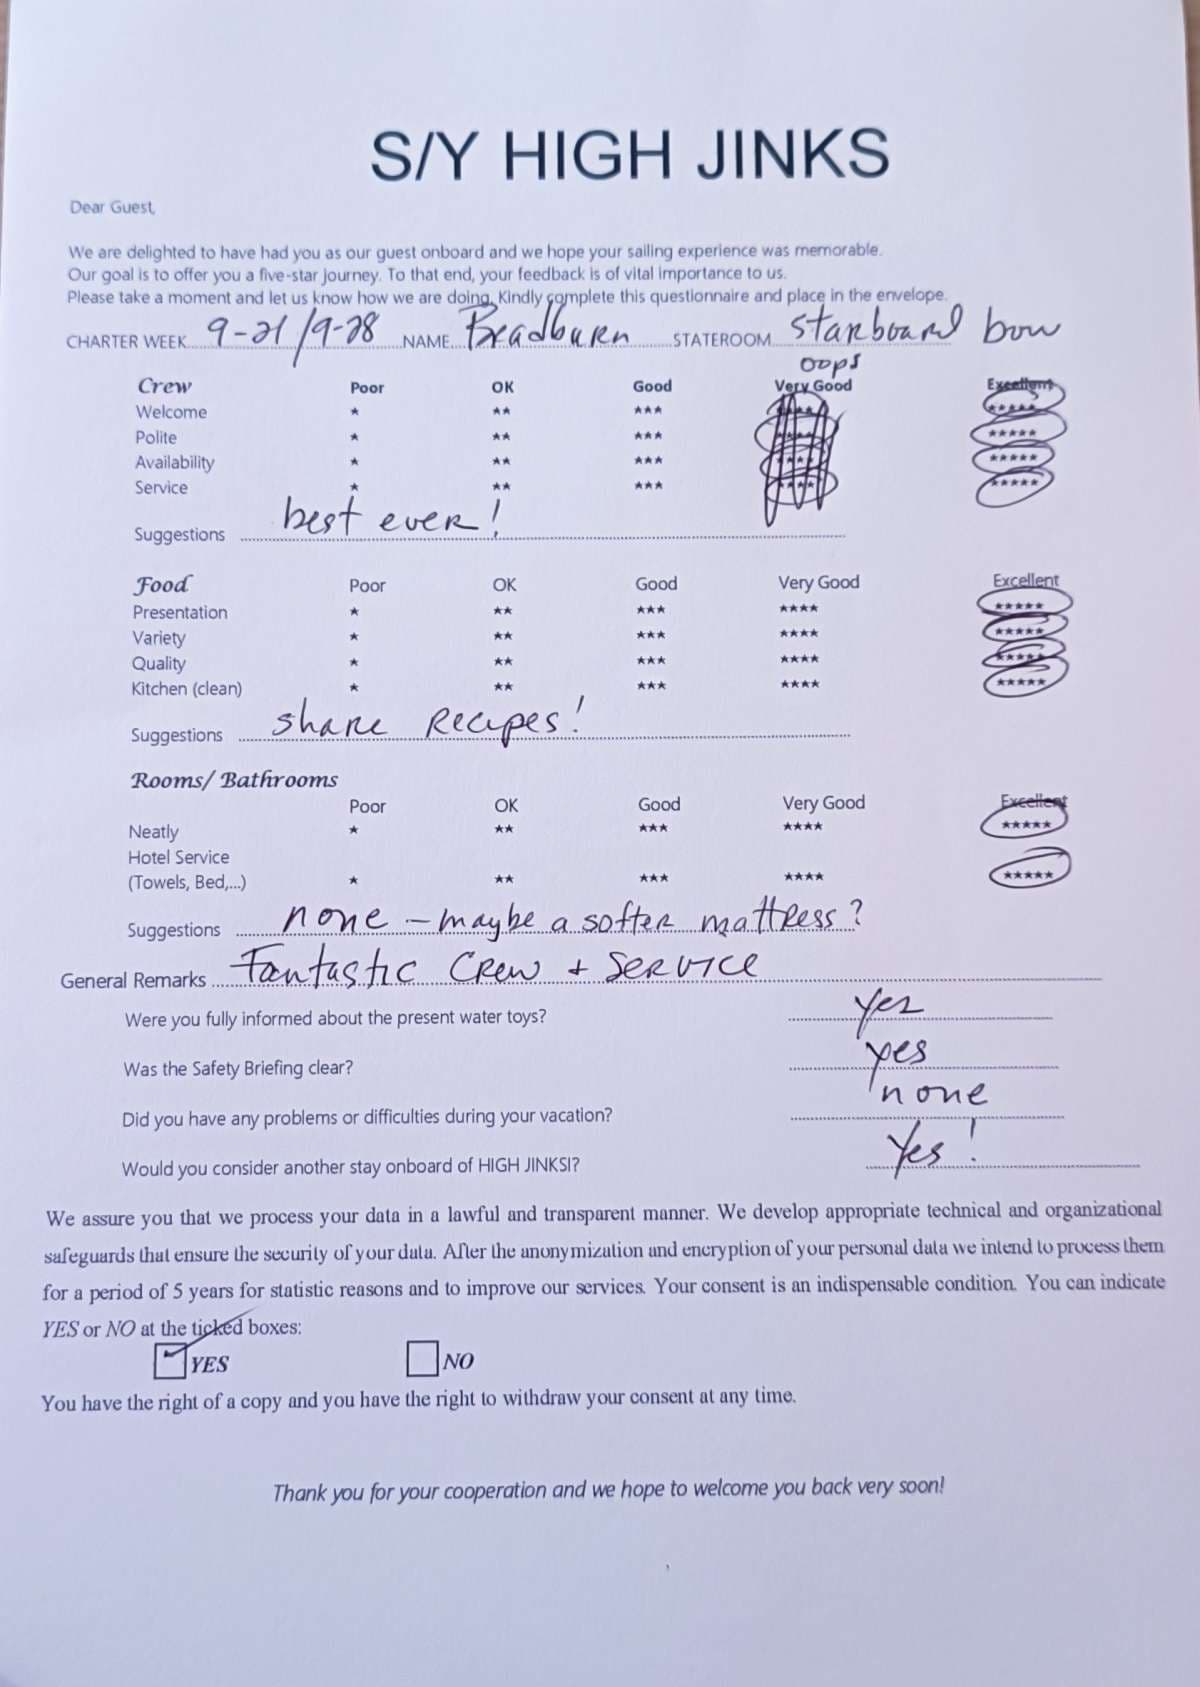 S/Y HIGH JINKS
Dear Guest,
We are delighted to have had you as our guest onboard and we hope your sailing experience was memorable.
Our goal is to offer you a five-star journey. To that end, your feedback is of vital importance to us.
Please take a moment and let us know how we are doing. Kindly complete this questionnaire and place in the envelope.
CHARTER WEEK 9-21/9-28 NAME Bradburn STATEROOM starboard bow
oops
Crew Poor OK Good Very Good Excellent
Welcome ★ ★★ ★★★ ★★★★ ★★★★★
Polite ★ ★★ ★★★ ★★★★ ★★★★★
Availability ★ ★★ ★★★ ★★★★ ★★★★★
Service ★ ★★ ★★★ ★★★★ ★★★★★
Suggestions best ever!
Food Poor OK Good Very Good Excellent
Presentation ★ ★★ ★★★ ★★★★ ★★★★★
Variety ★ ★★ ★★★ ★★★★ ★★★★★
Quality ★ ★★ ★★★ ★★★★ ★★★★★
Kitchen (clean) ★ ★★ ★★★ ★★★★ ★★★★★
Suggestions share Recipes!
Rooms/ Bathrooms
Poor OK Good Very Good Excellent
Neatly ★ ★★ ★★★ ★★★★ ★★★★★
Hotel Service
(Towels, Bed,...) ★ ★★ ★★★ ★★★★ ★★★★★
Suggestions none - maybe a softer mattress?
General Remarks Fantastic Crew + Service
Were you fully informed about the present water toys? yes
Was the Safety Briefing clear? yes
Did you have any problems or difficulties during your vacation? none
Would you consider another stay onboard of HIGH JINKSI? Yes!
We assure you that we process your data in a lawful and transparent manner. We develop appropriate technical and organizational
safeguards that ensure the security of your data. After the anonymization and encryption of your personal data we intend to process them
for a period of 5 years for statistic reasons and to improve our services. Your consent is an indispensable condition. You can indicate
YES or NO at the ticked boxes:
YES NO
You have the right of a copy and you have the right to withdraw your consent at any time.
Thank you for your cooperation and we hope to welcome you back very soon!